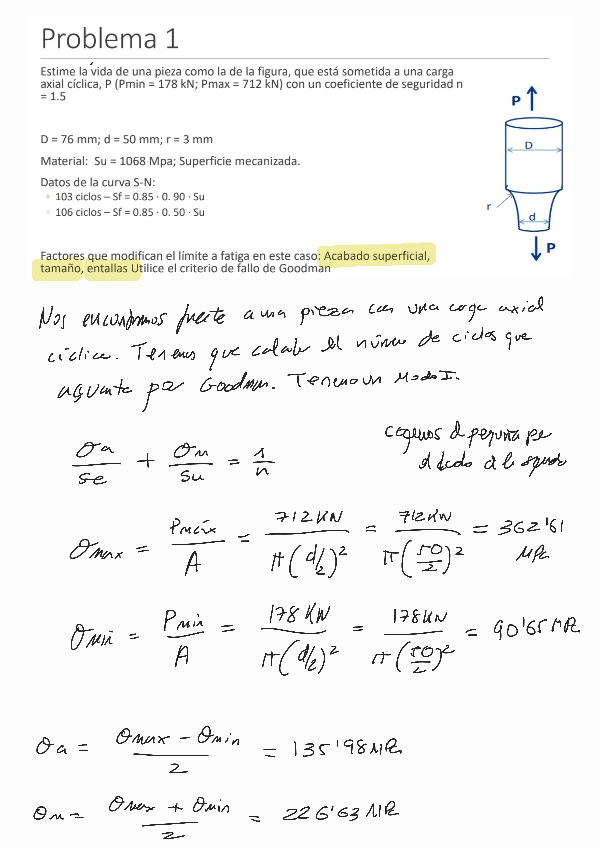 Problema 1
Estime la vida de una pieza como la de la figura, que está sometida a una carga
axial cíclica, P (Pmin = 178 kN; Pmax = 712 kN) con un coeficiente de seguridad n
= 1.5
D = 76 mm; d = 50 mm; r = 3 mm
Material: Su = 1068 Mpa; Superficie mecanizada.
Datos de la curva S-N:
• 103 ciclos – Sf = 0.85 · 0. 90 · Su
• 106 ciclos – Sf = 0.85 · 0. 50 · Su
P
D
r
d
P
Factores que modifican el límite a fatiga en este caso: Acabado superficial,
tamaño, entallas Utilice el criterio de fallo de Goodman
Nos encontramos frente a una pieza con una carga axial
cíclica. Tenemos que calcular el número de ciclos que
aguanta por Goodman. Tenemos un Modo I.
cogemos d pequeña
σa/Se + σm/Su = 1/n
σmax = Pmáx/A = 712 KN/π(d/2)² = 712 KN/π(50/2)² = 362'61 MPa
σmin = Pmin/A = 178 KN/π(d/2)² = 178 KN/π(50/2)² = 90'65 MPa
σa = σmax - σmin/2 = 135'98 MPa
σm = σmax + σmin/2 = 226'63 MPa